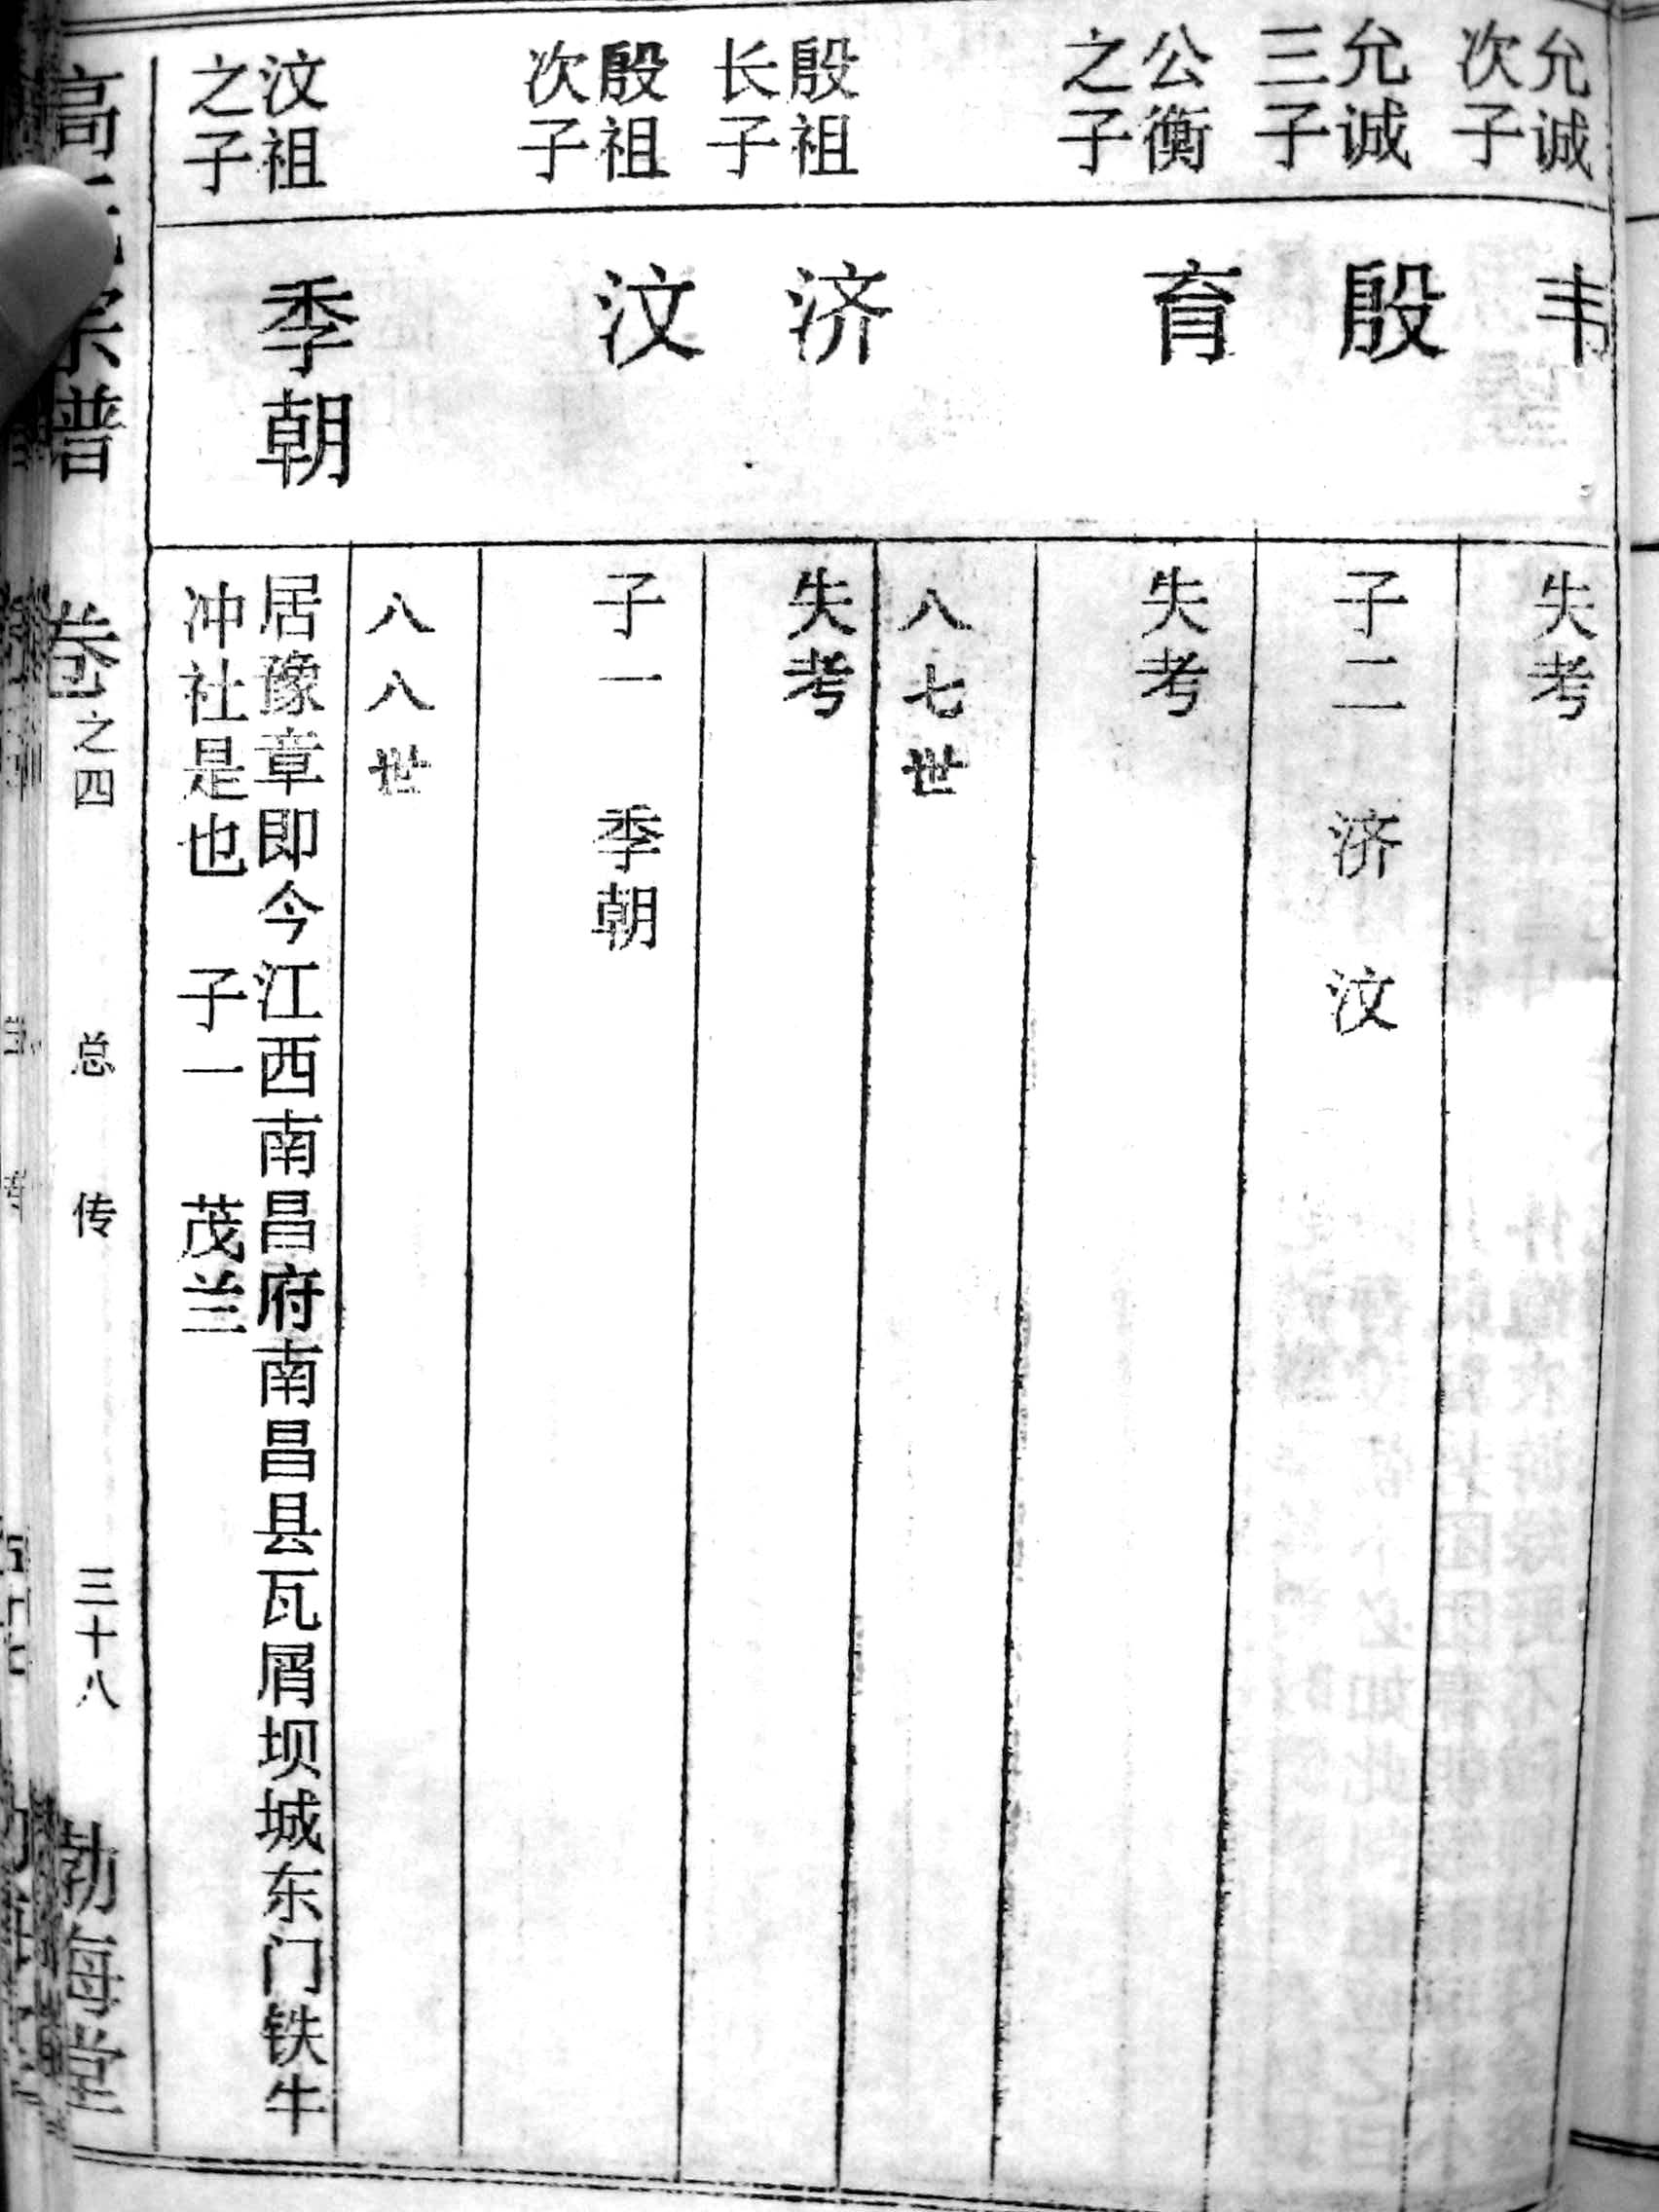 允诚
次子
韦
失考
允诚
三子
殷
子二 济 汶
公衡
之子
育
失考
八七世
殷祖
长子
济
失考
殷祖
次子
汶
子一 季朝
八八世
汶祖
之子
季朝
居豫章即今江西南昌府南昌县瓦屑坝城东门铁牛
冲社是也 子一 茂兰
高 宗谱 卷之四 总传 三十八 勃海堂